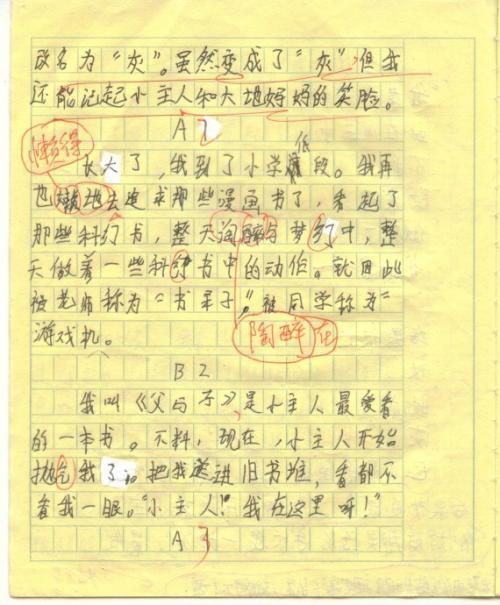 改名为“灰”。虽然变成了“灰”但我
还能记起小主人和大地妈妈的笑脸。
A 2
长大了，我到了小学低段。我再
也懒得去追求那些漫画书了，看起了
那些科幻书，整天陶醉在梦幻中，整
天做着一些科幻书中的动作。就因此
被老师称为“书呆子”，被同学称为“
游戏机。
B 2
我叫《父与子》，是小主人最爱看
的一本书。不料，现在，小主人开始
抛弃我了。把我送进旧书堆，看都不
看我一眼。“小主人！我在这里呀！”
A 3